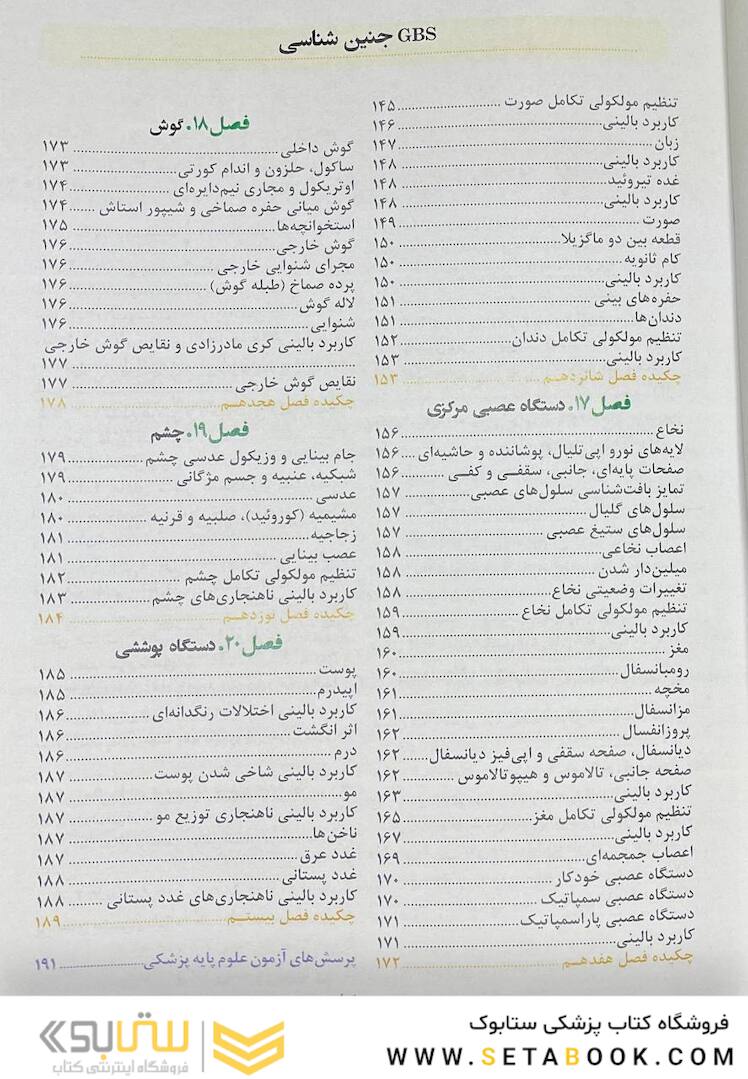 GBS جنین شناسی
تنظیم مولکولی تکامل صورت ........ ۱۴۵
کاربرد بالینی ........ ۱۴۶
زبان ........ ۱۴۷
کاربرد بالینی ........ ۱۴۸
غده تیروئید ........ ۱۴۸
کاربرد بالینی ........ ۱۴۸
صورت ........ ۱۴۹
قطعه بین دو ماگزیلا ........ ۱۵۰
کام ثانویه ........ ۱۵۰
کاربرد بالینی ........ ۱۵۰
حفره‌های بینی ........ ۱۵۱
دندان‌ها ........ ۱۵۱
تنظیم مولکولی تکامل دندان ........ ۱۵۲
کاربرد بالینی ........ ۱۵۳
چکیده فصل شانزدهم ........ ۱۵۳
فصل ۱۷. دستگاه عصبی مرکزی
نخاع ........ ۱۵۶
لایه‌های نورو اپی‌تلیال، پوشاننده و حاشیه‌ای ........ ۱۵۶
صفحات پایه‌ای، جانبی، سقفی و کفی ........ ۱۵۶
تمایز بافت‌شناسی سلول‌های عصبی ........ ۱۵۷
سلول‌های گلیال ........ ۱۵۷
سلول‌های ستیغ عصبی ........ ۱۵۷
اعصاب نخاعی ........ ۱۵۸
میلین‌دار شدن ........ ۱۵۸
تغییرات وضعیتی نخاع ........ ۱۵۸
تنظیم مولکولی تکامل نخاع ........ ۱۵۹
کاربرد بالینی ........ ۱۵۹
مغز ........ ۱۶۰
رومبانسفال ........ ۱۶۰
مخچه ........ ۱۶۱
مزانسفال ........ ۱۶۱
پروزانفسال ........ ۱۶۲
دیانسفال، صفحه سقفی و اپی‌فیز دیانسفال ........ ۱۶۲
صفحه جانبی، تالاموس و هیپوتالاموس ........ ۱۶۲
کاربرد بالینی ........ ۱۶۳
تنظیم مولکولی تکامل مغز ........ ۱۶۵
کاربرد بالینی ........ ۱۶۷
اعصاب جمجمه‌ای ........ ۱۶۹
دستگاه عصبی خودکار ........ ۱۷۰
دستگاه عصبی سمپاتیک ........ ۱۷۰
دستگاه عصبی پاراسمپاتیک ........ ۱۷۱
کاربرد بالینی ........ ۱۷۱
چکیده فصل هفدهم ........ ۱۷۲
فصل ۱۸. گوش
گوش داخلی ........ ۱۷۳
ساکول، حلزون و اندام کورتی ........ ۱۷۳
اوتریکول و مجاری نیم‌دایره‌ای ........ ۱۷۴
گوش میانی حفره صماخی و شیپور استاش ........ ۱۷۴
استخوانچه‌ها ........ ۱۷۵
گوش خارجی ........ ۱۷۶
مجرای شنوایی خارجی ........ ۱۷۶
پرده صماخ (طبله گوش) ........ ۱۷۶
لاله گوش ........ ۱۷۶
شنوایی ........ ۱۷۶
کاربرد بالینی کری مادرزادی و نقایص گوش خارجی
........ ۱۷۷
نقایص گوش خارجی ........ ۱۷۷
چکیده فصل هجدهم ........ ۱۷۸
فصل ۱۹. چشم
جام بینایی و وزیکول عدسی چشم ........ ۱۷۹
شبکیه، عنبیه و جسم مژگانی ........ ۱۷۹
عدسی ........ ۱۸۰
مشیمیه (کوروئید)، صلبیه و قرنیه ........ ۱۸۰
زجاجیه ........ ۱۸۱
عصب بینایی ........ ۱۸۱
تنظیم مولکولی تکامل چشم ........ ۱۸۲
کاربرد بالینی ناهنجاری‌های چشم ........ ۱۸۳
چکیده فصل نوزدهم ........ ۱۸۴
فصل ۲۰. دستگاه پوششی
پوست ........ ۱۸۵
اپیدرم ........ ۱۸۵
کاربرد بالینی اختلالات رنگدانه‌ای ........ ۱۸۶
اثر انگشت ........ ۱۸۶
درم ........ ۱۸۶
کاربرد بالینی شاخی شدن پوست ........ ۱۸۷
مو ........ ۱۸۷
کاربرد بالینی ناهنجاری توزیع مو ........ ۱۸۷
ناخن‌ها ........ ۱۸۷
غدد عرق ........ ۱۸۷
غدد پستانی ........ ۱۸۸
کاربرد بالینی ناهنجاری‌های غدد پستانی ........ ۱۸۸
چکیده فصل بیستم ........ ۱۸۹
پرسش‌های آزمون علوم پایه پزشکی ........ ۱۹۱
فروشگاه کتاب پزشکی ستابوک
WWW.SETABOOK.COM
ستابوک
فروشگاه اینترنتی کتاب